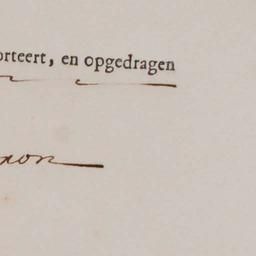 orteert, en opgedragen